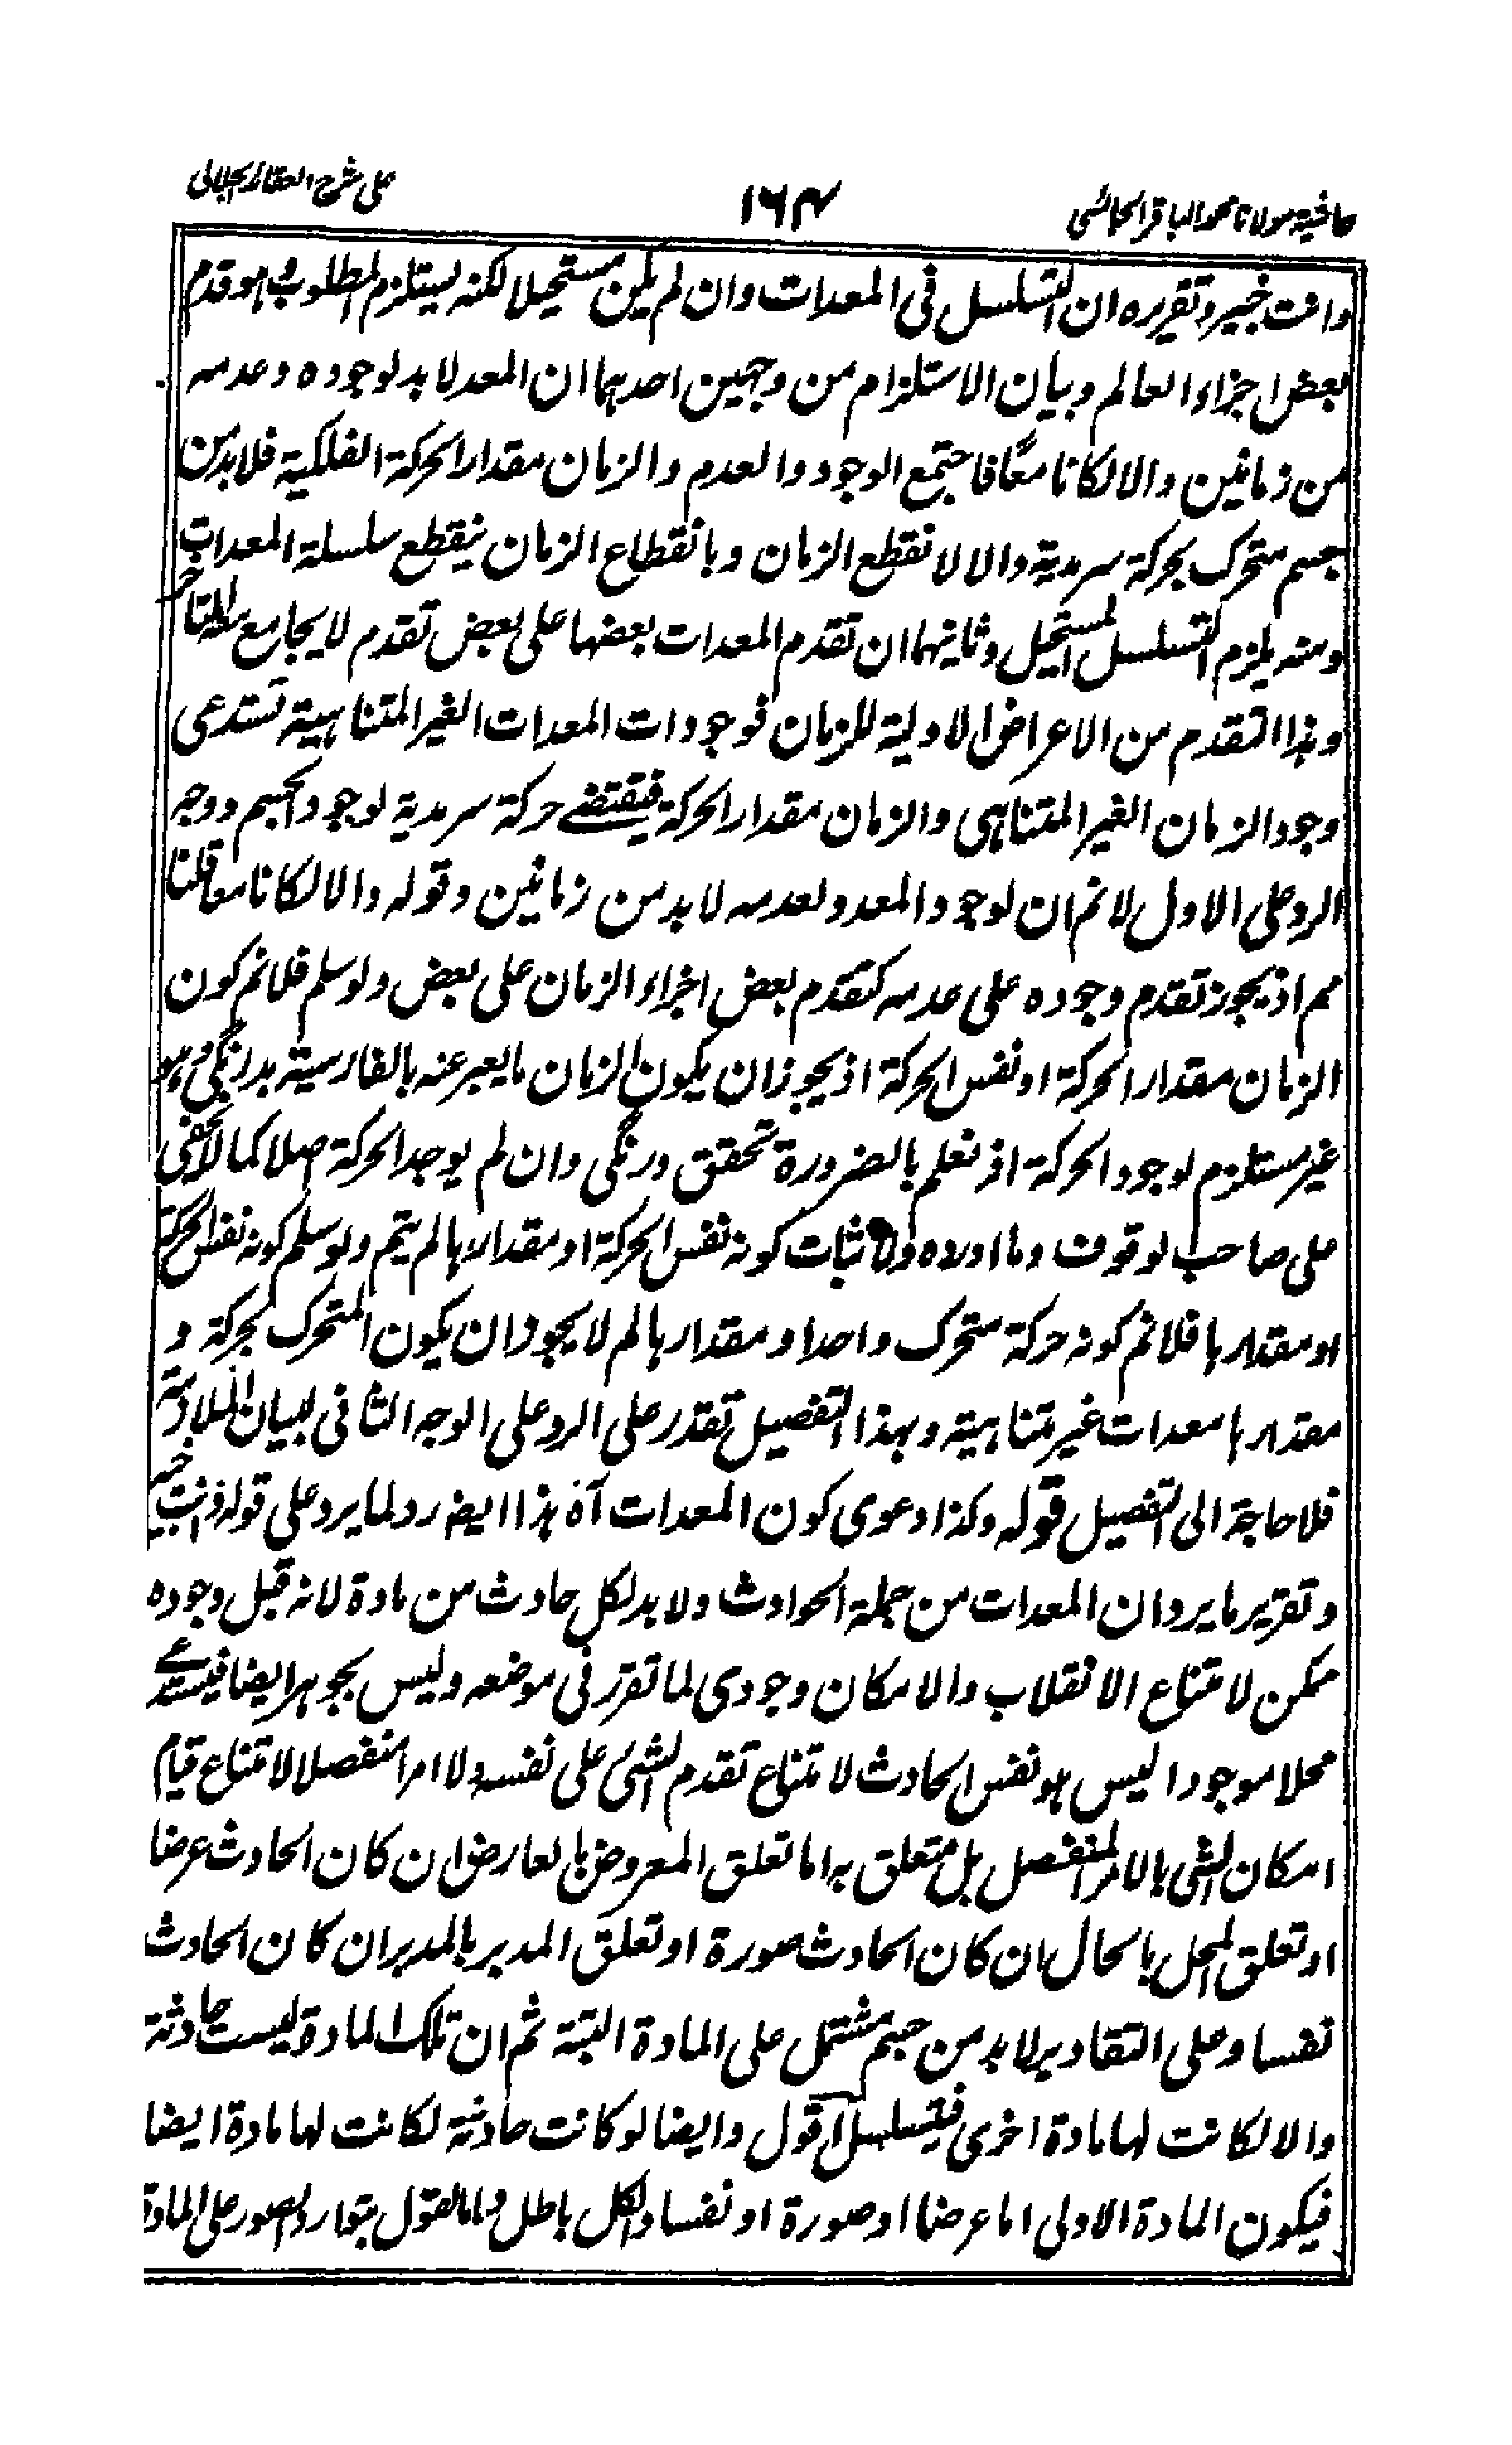 حاشیة مولانا محمد الباقر الجائسی
۱۶۴
علی شرح العقائد الجلالی
وانت خبیر وتقریره ان التسلسل فی المعدات وان لم یکن مستحیلا لکنه یستلزم المطلوب وهو قدم
بعض اجزاء العالم وبیان الاستلزام من وجهین احدهما ان المعد لا بد لوجوده وعدمه
من زمانین والا لکانا معًا فاجتمع الوجود والعدم والزمان مقدار الحرکة الفلکیة فلا بد من
جسم متحرک بحرکة سرمدیة والا لانقطع الزمان وبانقطاع الزمان ینقطع سلسلة المعدات
ومنه یلزم التسلسل المستحیل وثانیهما ان تقدم المعدات بعضها علی بعض تقدم لا یجامع معه المتاخر
وهذا التقدم من الاعراض الاولیة للزمان فوجودات المعدات الغیر المتناهیة تستدعی
وجود الزمان الغیر المتناهی والزمان مقدار الحرکة فیقتضے حرکة سرمدیة لوجود الجسم ووجه
الرد علی الاول لانم ان لوجود المعد ولعدمه لا بد من زمانین وقوله والا لکانا معا قلنا
مم اذ یجوز تقدم وجوده علی عدمه کتقدم بعض اجزاء الزمان علی بعض ولو سلم فلانم کون
الزمان مقدار الحرکة او نفس الحرکة اذ یجوز ان یکون الزمان ما یعبر عنه بالفارسیة بدرنگی وهو
غیر مستلزم لوجود الحرکة اذ نعلم بالضرورة تحقق درنگی وان لم یوجد الحرکة اصلا کما لا یخفی
علی صاحب الوقوف وما اوردوه لاثبات کونه نفس الحرکة او مقدارها لم یتم ولو سلم کونه نفس الحرکة
او مقدارها فلانم کونه حرکة متحرک واحد او مقدارها لم لا یجوز ان یکون المتحرک بحرکة و
مقدارها معدات غیر متناهیة وبهذا التفصیل تقدر علی الرد علی الوجه الثانی لبیان الملازمة
فلا حاجة الی التفصیل قوله وکذا دعوی کون المعدات آه هذا ایضا رد لما یرد علی قوله وانت خبیر
وتقریر ما یرد ان المعدات من جملة الحوادث ولا بد لکل حادث من مادة لانه قبل وجوده
ممکن لامتناع الانقلاب والامکان وجودی لما تقرر فی موضعه ولیس بجوهر ایضا فیستدعے
محلا موجودا لیس هو نفس الحادث لامتناع تقدم الشیء علی نفسه ولا امرا منفصلا لامتناع قیام
امکان الشیء بالامر المنفصل بل متعلق به اما تعلق المعروض بالعارض ان کان الحادث عرضا
او تعلق المحل بالحال ان کان الحادث صورة او تعلق المدبر بالمدبر ان کان الحادث
نفسا وعلی التقادیر لا بد من جسم مشتمل علی المادة البتة ثم ان تلک المادة لیست حادثة
والا لکانت لها مادة اخری فیتسلسل اقول وایضا لو کانت حادثة لکانت لها مادة ایضا
فیکون المادة الاولی اما عرضا او صورة او نفسا والکل باطل واما القول بتوارد الصور علی المادة